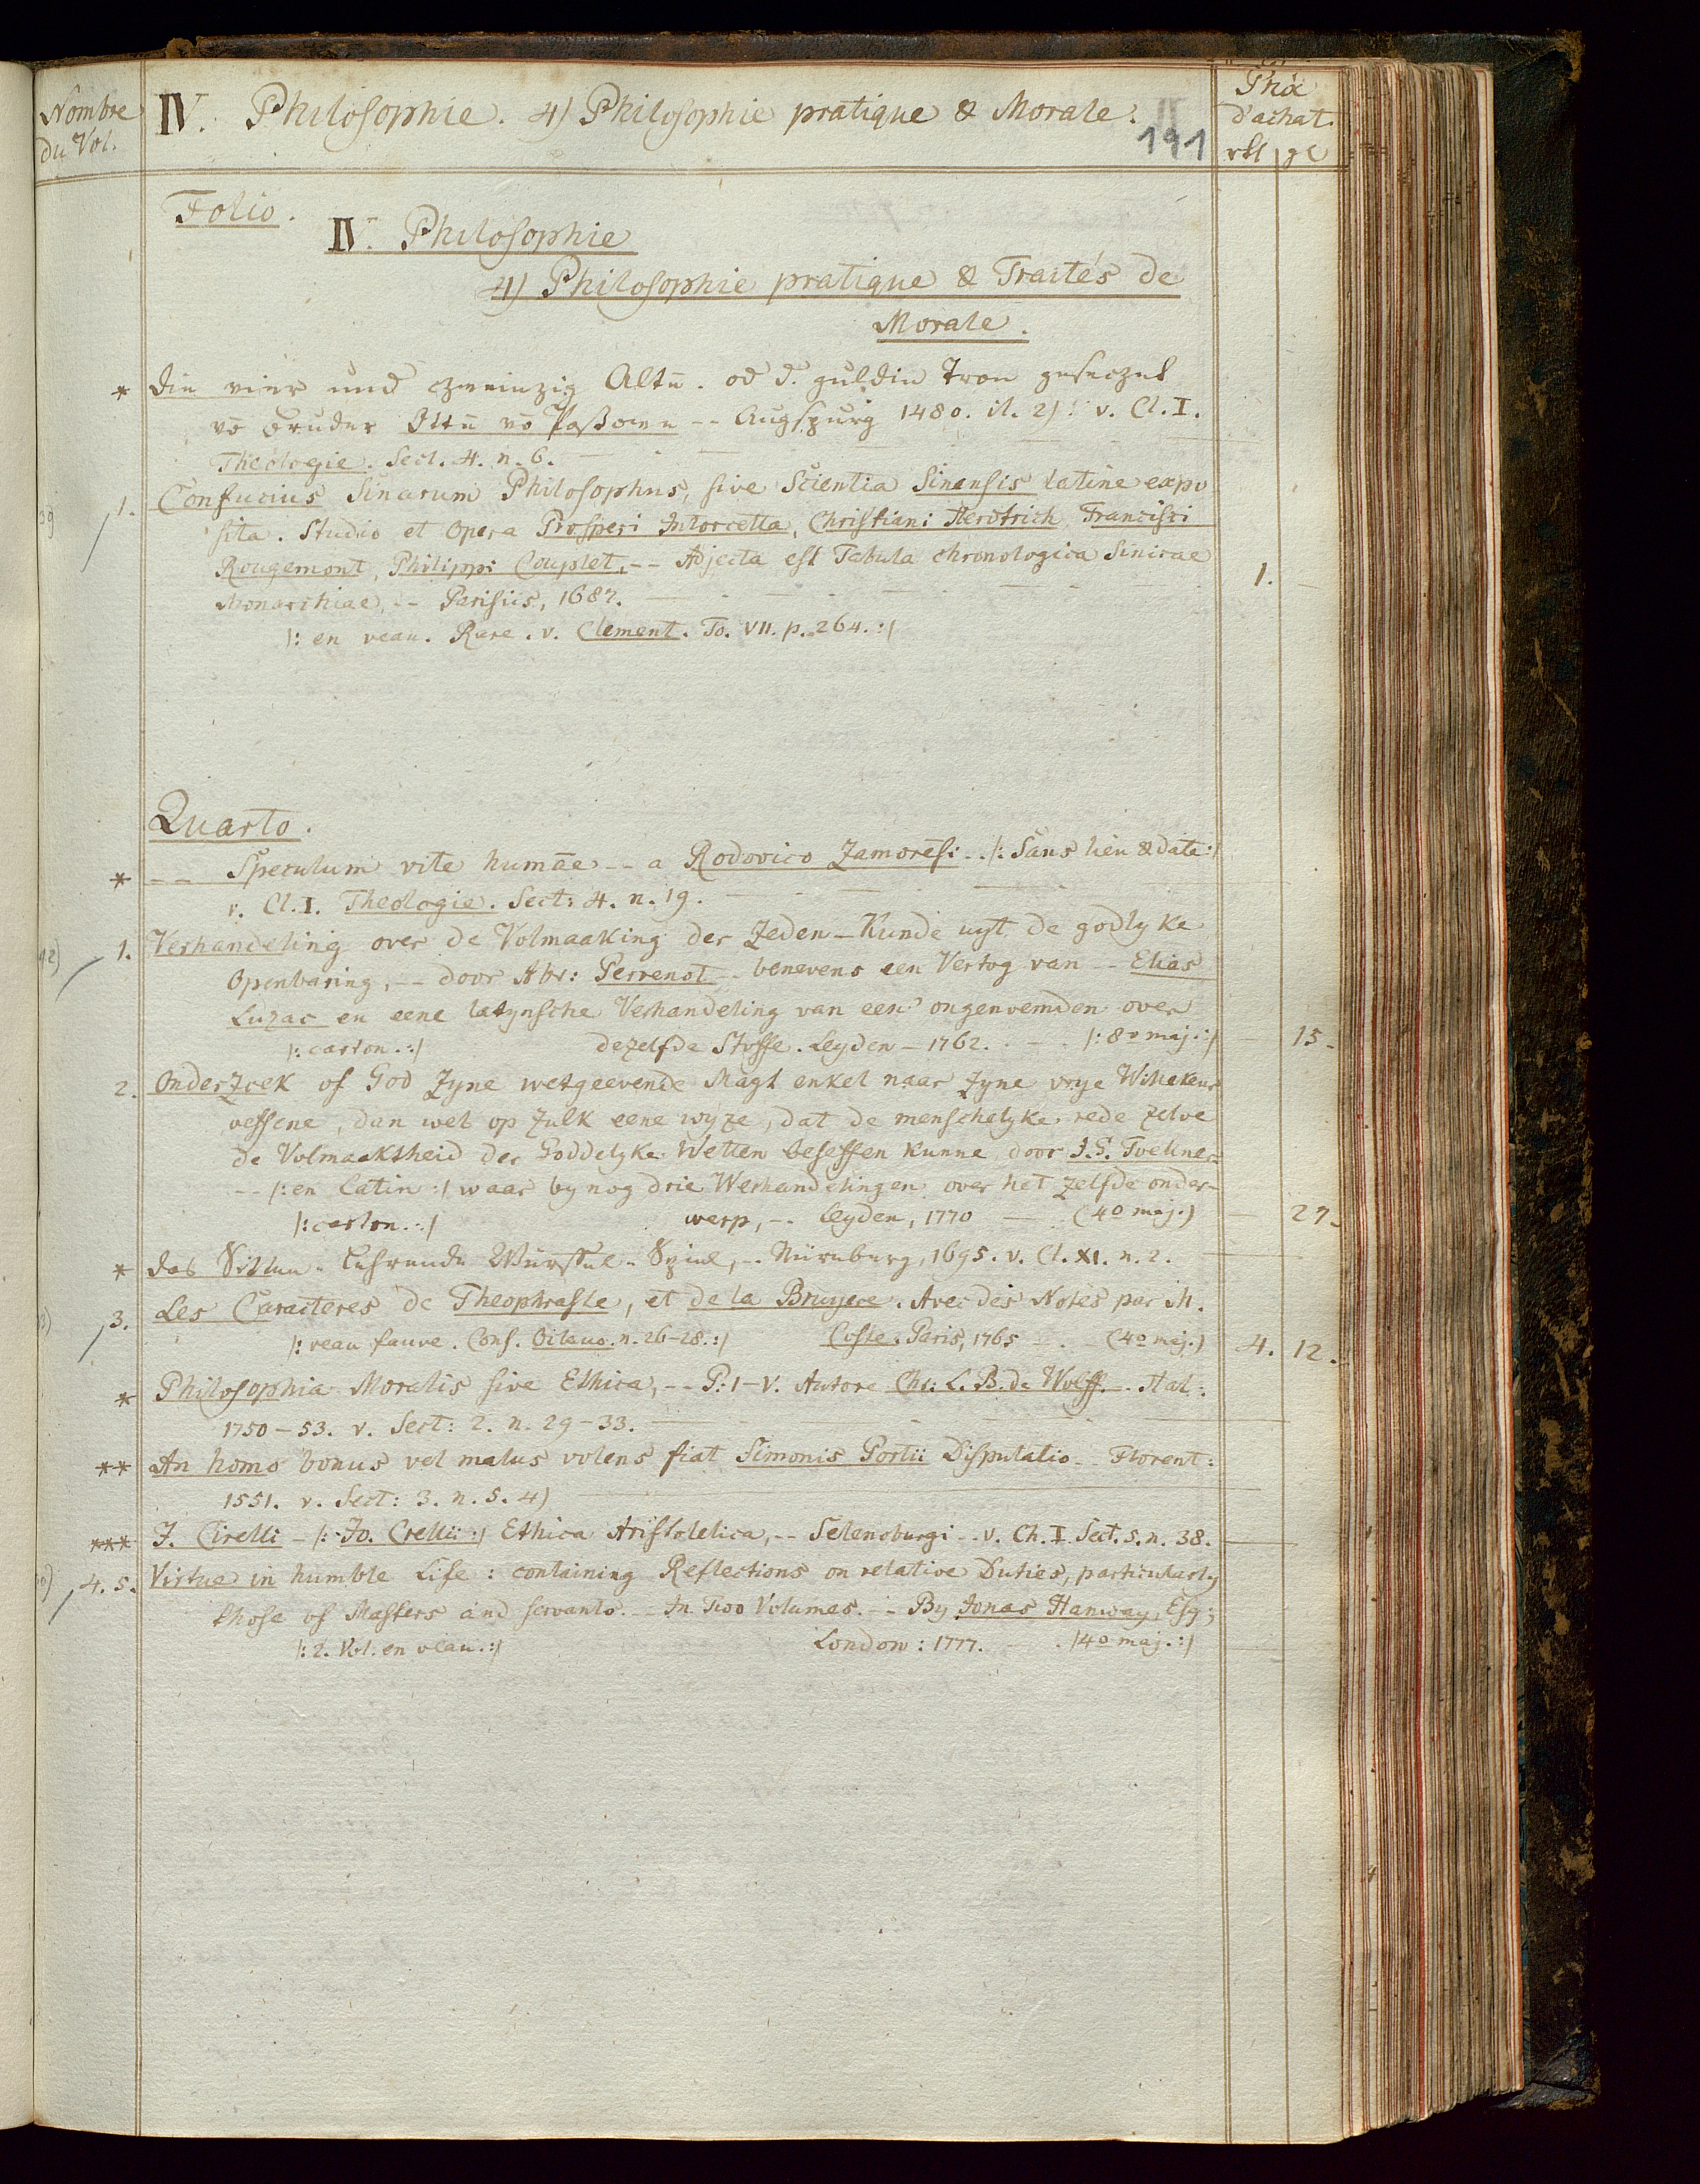 Nombre
du Vol.
IV. Philosophie. 4) Philosophie pratique & Morale.
191
Prix
d'achat.
rtl gl
Folio.
IV. Philosophie
4) Philosophie pratique & Traités de
Morale.
* die vier und czweinzig Altē. od d. guldin Tron geseczet
vō bruder Ottē vō Passowe -- Augspurg 1480. it. 2) v. Cl. I.
Theologie. Sect. 4. n. 6.
1. Confucius Sinarum Philosophus, sive Scientia Sinensis latine expo
sita. Studio et Opera Prosperi Intorcetta, Christiani Herdtrich, Francisci
Rougemont, Philippi Couplet, -- Adjecta est Tabula chronologica Sinicae
Monarchiae, -- Parisiis, 1687. 1.
|: en veau. Rare. v. Clement. To. VII. p. 264. :|
Quarto.
* -- Speculum vite humāe -- a Rodorico Zamorēsi -- |: Sans lieu & date :|
v. Cl. I. Theologie. Sect: 4. n. 19.
1. Verhandeling over de Volmaaking der Zeden-Kunde uyt de godlyke
Openbaring, -- door Abr: Perrenot -- benevens een Vertog van -- Elias
Luzac en eene latynsche Verhandeling van een' ongenoemden over
|: carton. :| dezelfde Stoffe. Leyden - 1762. |: 8o maj. :| 15.
2. Onderzoek of God Zyne wetgeevende Magt enkel naar Zyne vrye Willekeur
oeffene, dan wel op zulk eene wyze, dat de menschelyke rede zelve
de Volmaaktheid der Goddelyke Wetten beseffen kunne, door J. G. Toellner
-- |: en Latin :| waar by nog drie Verhandelingen over het zelfde onder-
|: carton. :| werp, -- Leyden, 1770 (4o maj.) 27.
* das Sitten-Lehrende Würffel-Spiel, -- Nürnberg, 1695. v. Cl. XI. n. 2.
3. Les Caracteres de Theophraste, et de la Bruyere. Avec des Notes par M.
|: veau fauve. Conf. Octavo. n. 26-28. :| Coste. Paris, 1765 (4o maj.) 4. 12.
* Philosophia Moralis sive Ethica, -- P: I-V. Autore Chr: L. B. de Wolff. -- Hal:
1750-53. v. Sect: 2. n. 29-33.
** An homo bonus vel malus volens fiat Simonis Portii Disputatio -- Florent:
1551. v. Sect: 3. n. 5. 4)
*** J. Cirelli - |: Jo. Crellii :| Ethica Aristotelica, -- Selenoburgi -- v. Ch. I. Sect. 5. n. 38.
4. 5. Virtue in humble Life: containing Reflections on relative Duties, particularly
those of Masters and servants. -- In Two Volumes. -- By Jonas Hanway, Esq;
|: 2. Vol. en veau. :| London: 1777. |4o maj. :|